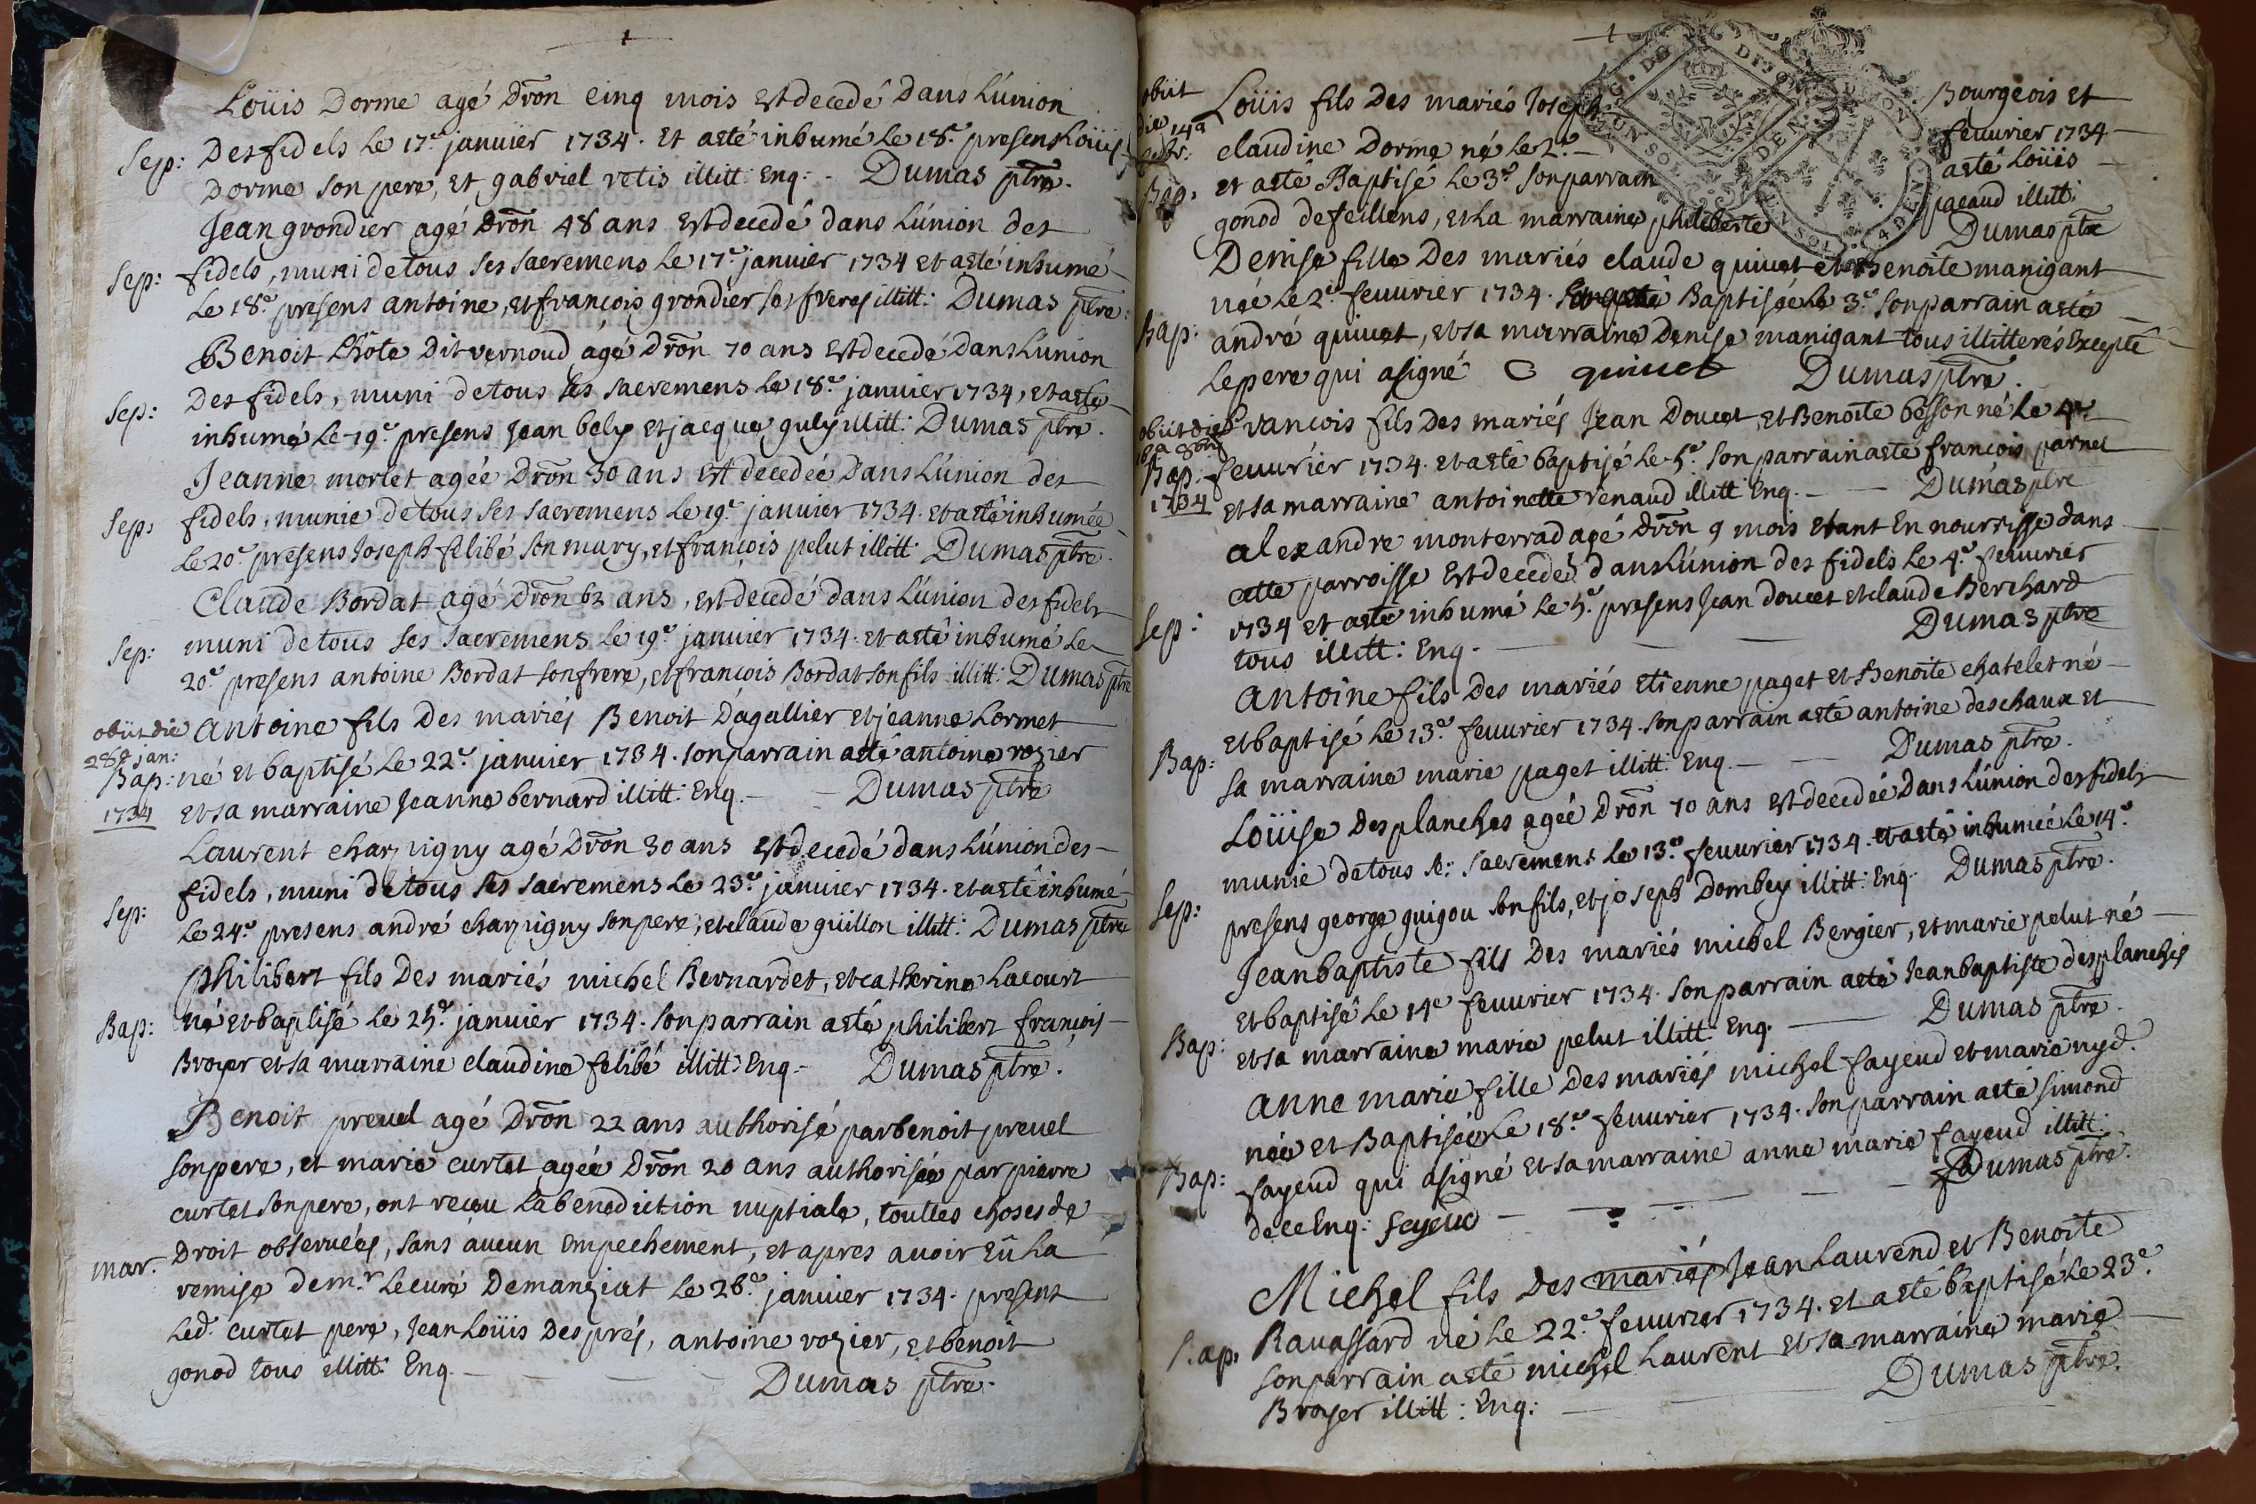 1
Loüis Dorme agé Dron cinq mois est decedé Dans L'union
Sep: Des fidels le 17.e januier 1734. et a esté inhumé le 18.e presens Loüis
Dorme son pere, et gabriel retis illitt: Enq: - Dumas ptre.
Jean grondier agé Dron 48 ans est decedé dans L'union des
Sep: fidels, muni de tous ses sacremens le 17.e januier 1734 et a esté inhumé
le 18.e presens antoine, et françois grondier ses freres illitt: Dumas ptre:
Benoit Lhote Dit vernoud agé Dron 70 ans est decedé Dans L'union
Sep: Des fidels, muni de tous ses sacremens le 18.e januier 1734, et a esté
inhumé le 19.e presens Jean bely et jacque guly illitt: Dumas ptre.
Jeanne morlet agée Dron 30 ans est decedée Dans L'union des
Sep: fidels, munie de tous ses sacremens le 19.e januier 1734. et a esté inhumée
le 20.e presens Joseph felibé son mary, et françois pelut illitt: Dumas ptre.
Claude Bordat agé Dron 62 ans, est decedé dans L'union des fidels
Sep: muni de tous ses sacremens le 19.e januier 1734. et a esté inhumé le
20.e presens antoine Bordat son frere, et françois Bordat son fils illitt: Dumas ptre
obiit die antoine fils Des mariés Benoit Dagallier et jeanne Lormet
28.a jan:
Bap: né et baptisé le 22.e januier 1734. son parrain a esté antoine rozier
1734 et sa marraine Jeanne bernard illitt: Enq. - - Dumas ptre
Laurent charvigny agé Dron 30 ans est decedé dans L'union des
Sep: fidels, muni de tous ses sacremens le 23.e januier 1734. et a esté inhumé
le 24.e presens andré charvigny son pere, et claude guillon illitt: Dumas ptre
philibert fils Des mariés michel Bernardet, et catherine Lacourt
Bap: né et baptisé le 25.e januier 1734. son parrain a esté philibert françois
Broyer et sa marraine claudine felibé illitt: Enq. - Dumas ptre.
Benoit preuel agé Dron 22 ans authorisé par benoit preuel
son pere, et marie curtet agée Dron 20 ans authorisée par pierre
curtet son pere, ont reçeu La benediction nuptiale, toutes choses de
mar. Droit obseruées, sans aucun empechement, et apres auoir Eü La
remise de m.r Le curé Demanziat le 26.e januier 1734. present
Led. curtet pere, Jean Loüis Després, antoine rozier, et benoit
gonod tous illitt: Enq. - - - - Dumas ptre.
1
obiit Loüis fils Des mariés Joseph Bourgeois et
die 14a claudine Dorme né le 2.e feuurier 1734
Bap: et a esté Baptisé le 3.e son parrain a esté Loüis
gonod de feillens, et la marraine philiberte pacaud illitt:
Dumas ptre
Denise fille Des mariés claude quiuet et Benoite manigant
née le 2.e feuurier 1734. Baptisée le 3.e son parrain a esté
Bap: andré quiuet, et sa marraine Denise manigant tous illitterés Excepté
le pere qui a signé C quiuet Dumas ptre.
obiit die francois fils Des mariés Jean Doucet, et Benoite besson né le 4.e
Bap: feuurier 1734. et a esté baptisé le 5.e son parrain a esté françois parnet
1734 et sa marraine antoinette renaud illitt: Enq. - - Dumas ptre
alexandre monterrad agé Dron 9 mois etant En nourrisse dans
cette parroisse est decedé dans L'union des fidels le 4.e feuurier
Sep: 1734 et a esté inhumé le 5.e presens Jean doucet et claude Berchard
tous illitt: Enq. - - Dumas ptre
antoine fils Des mariés etienne paget et Benoite chatelet né
et baptisé le 13.e feuurier 1734. son parrain a esté antoine deschaux et
Bap: sa marraine marie paget illitt: Enq. - - Dumas ptre.
Loüise Desplanches agée Dron 70 ans est decedée Dans L'union des fidels
munie de tous ses sacremens le 13.e feuurier 1734. et a esté inhumée le 14.e
Sep: presens george guigou son fils, et joseph Dombey illitt: Enq. Dumas ptre.
Jean baptiste fils Des mariés michel Bergier, et marie pelut né
et baptisé le 14.e feuurier 1734. son parrain a esté Jean baptiste desplanches
Bap: et sa marraine marie pelut illitt: Enq. - Dumas ptre.
anne marie fille Des mariés michel fayeud et marie nyd.
née et Baptisée le 18.e feuurier 1734. son parrain a esté simond
Bap: fayeud qui a signé et sa marraine anne marie fayeud illitt:
de ce Enq: fayeud - - - Dumas ptre.
Michel fils Des mariés Jean Laurend et Benoite
Bap: Rauassard né le 22.e feuurier 1734. et a esté baptisé le 23.e
son parrain a esté michel Laurent et sa marraine marie
Broyer illitt: Enq: - - Dumas ptre.